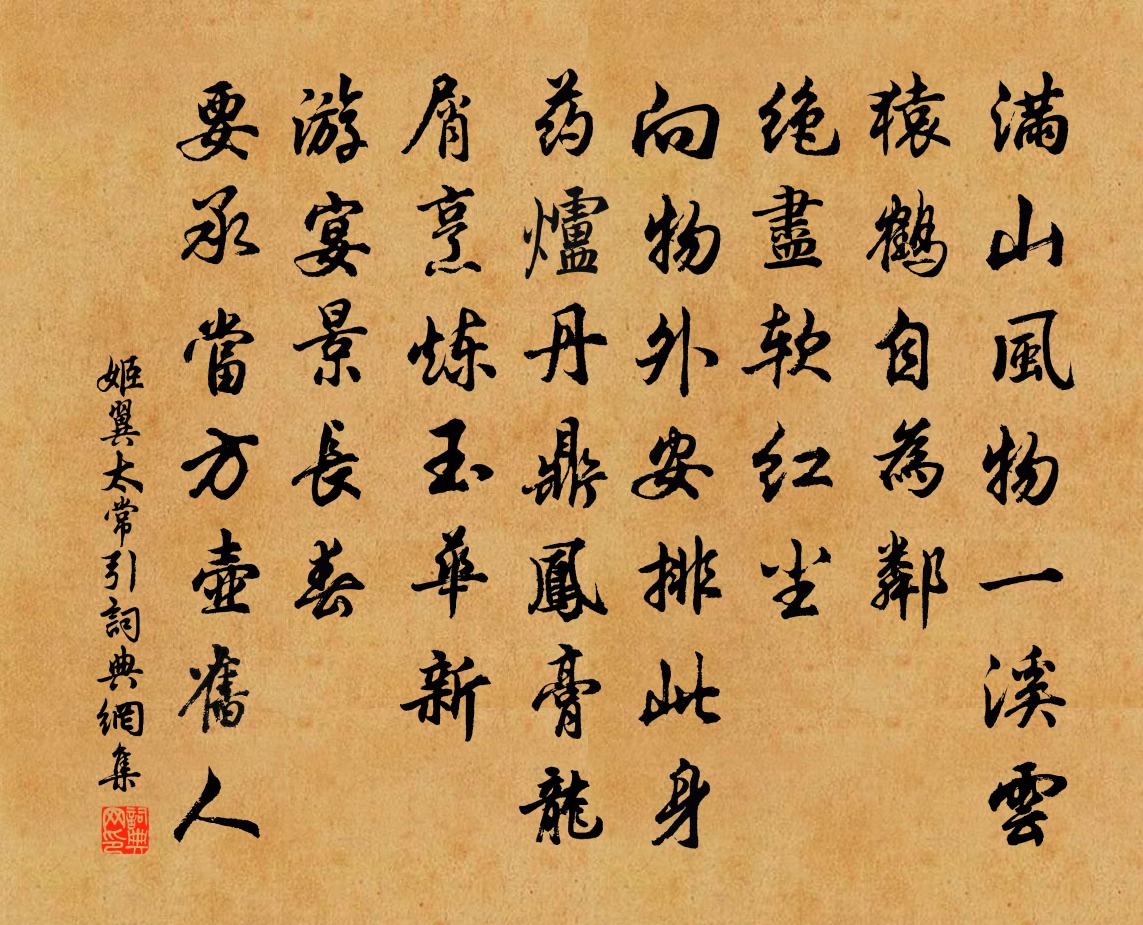 满山風物一溪雲
猿鶴自為鄰
绝盡软红尘
向物外安排此身
药爐丹鼎鳳膏龍
屑烹炼玉華新
游宴景長春
要承當方壺舊人
姬翼太常引詞典網集
詞典
网印